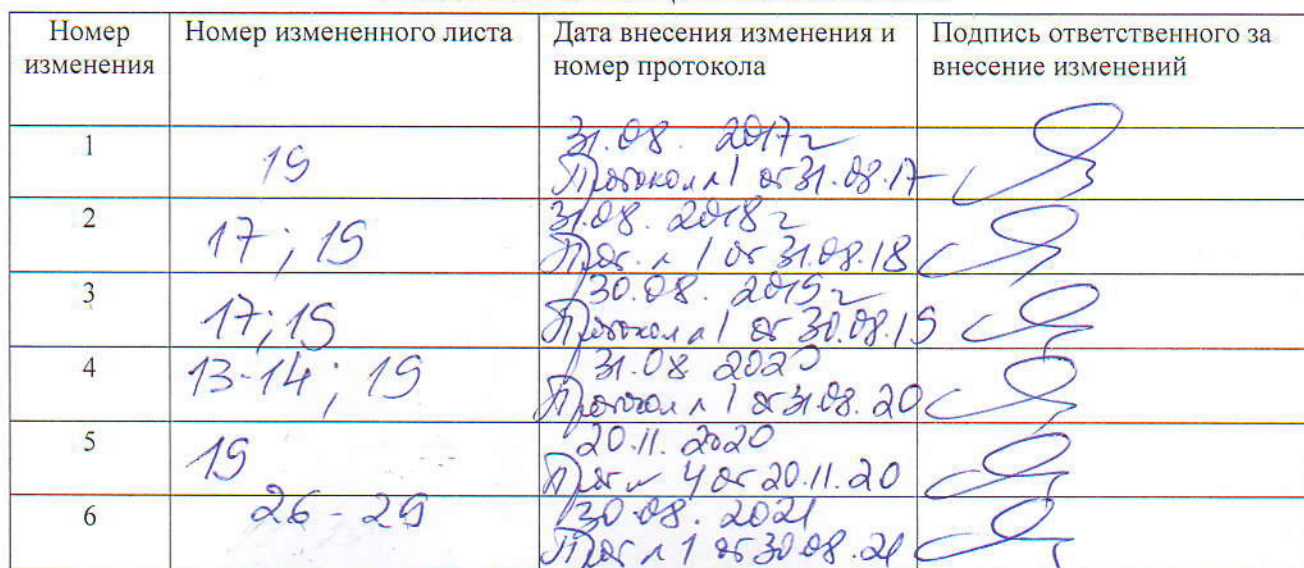 Номер изменения
Номер измененного листа
Дата внесения изменения и номер протокола
Подпись ответственного за внесение изменений
1
19
31.08. 2017 г
Протокол №1 от 31.08.17
2
17; 19
31.08. 2018 г
Прот. № 1 от 31.08.18
3
17; 19
30.08. 2019 г
Протокол №1 от 30.08.19
4
13-14; 19
31.08 2020
Протокол №1 от 31.08.20
5
19
20.11. 2020
Прот № 4 от 20.11.20
6
26-29
30.08.2021
Прот №1 от 30.08.21